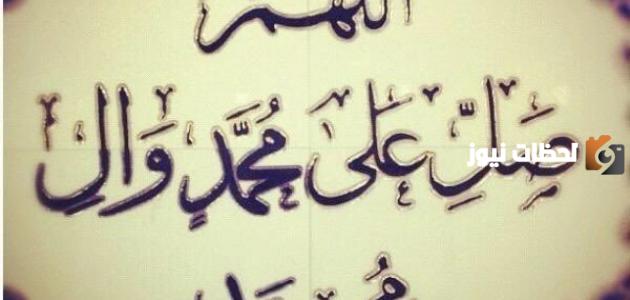 اللهم
صَلِّ عَلى مُحمَّدٍ وَالِ
لحظات نيوز